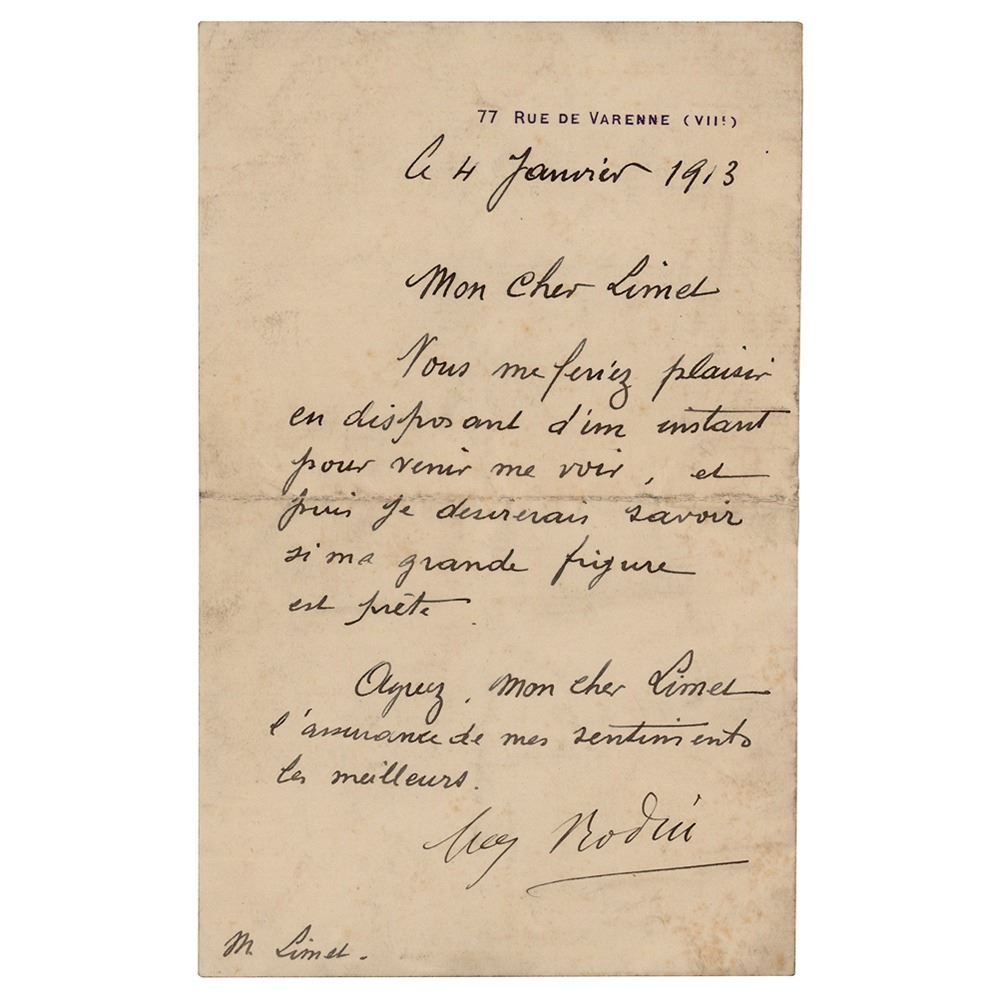 77 RUE DE VARENNE (VIIe)
le 4 Janvier 1913
Mon cher Limet
Vous me feriez plaisir
en disposant d'un instant
pour venir me voir, et
puis je desirerais savoir
si ma grande figure
est prête.
Agreez, mon cher Limet
l'assurance de mes sentiments
les meilleurs.
Aug Rodin
M. Limet.